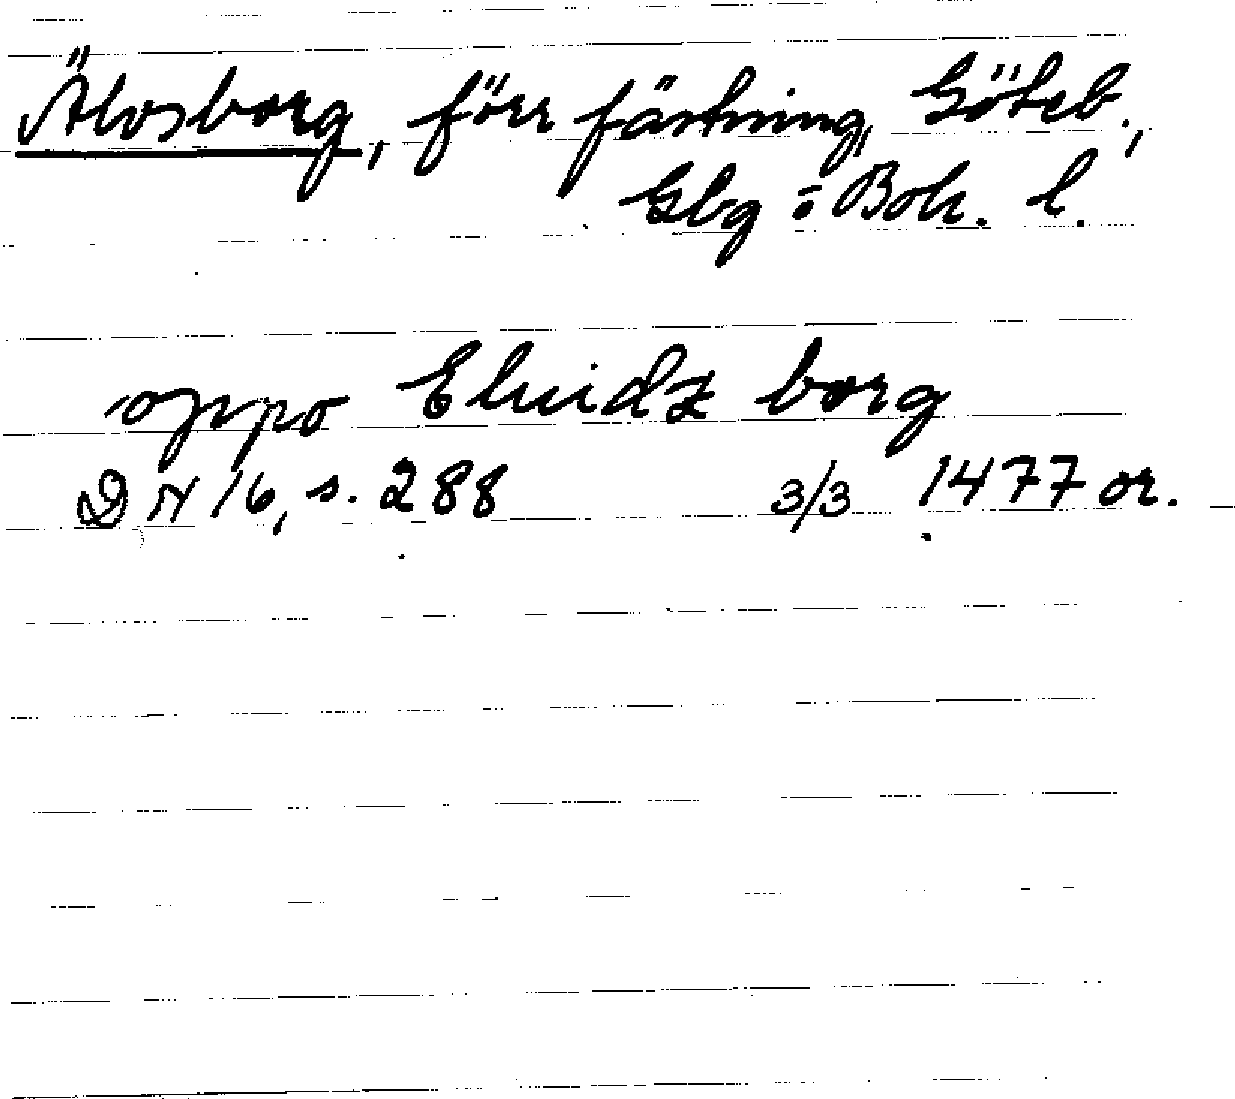 Älvsborg, förr fästning, Göteb.,
Gbg o Boh. l.
oppo Eluidz borg
DN 16, s. 288 3/3 1477 or.